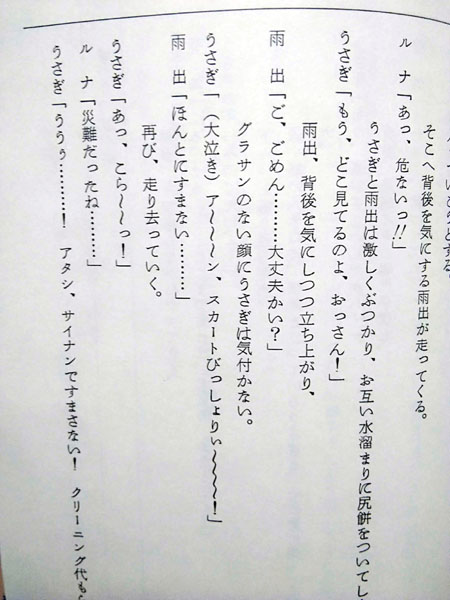 そこへ背後を気にする雨出が走ってくる。
ルナ「あっ、危ないっ!!」
うさぎと雨出は激しくぶつかり、お互い水溜まりに尻餅をついてし
うさぎ「もう、どこ見てるのよ、おっさん!」
雨出、背後を気にしつつ立ち上がり、
雨出「ご、ごめん………大丈夫かい?」
グラサンのない顔にうさぎは気付かない。
うさぎ「(大泣き)ア〜〜〜ン、スカートびっしょりぃ〜〜〜〜!」
雨出「ほんとにすまない………」
再び、走り去っていく。
うさぎ「あっ、こら〜〜っ!」
ルナ「災難だったね………」
うさぎ「うぅぅ…………! アタシ、サイナンですまさない! クリーニング代も